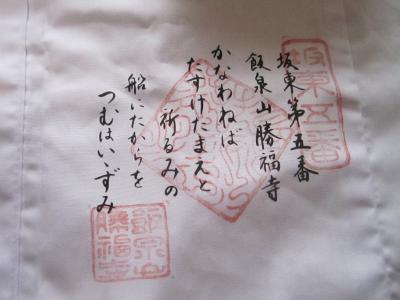 坂東第五番
飯泉山勝福寺
かなわねば
たすけたまえと
祈るみの
船にたからを
つむはいずみ
坂東五番
飯泉山
勝福寺